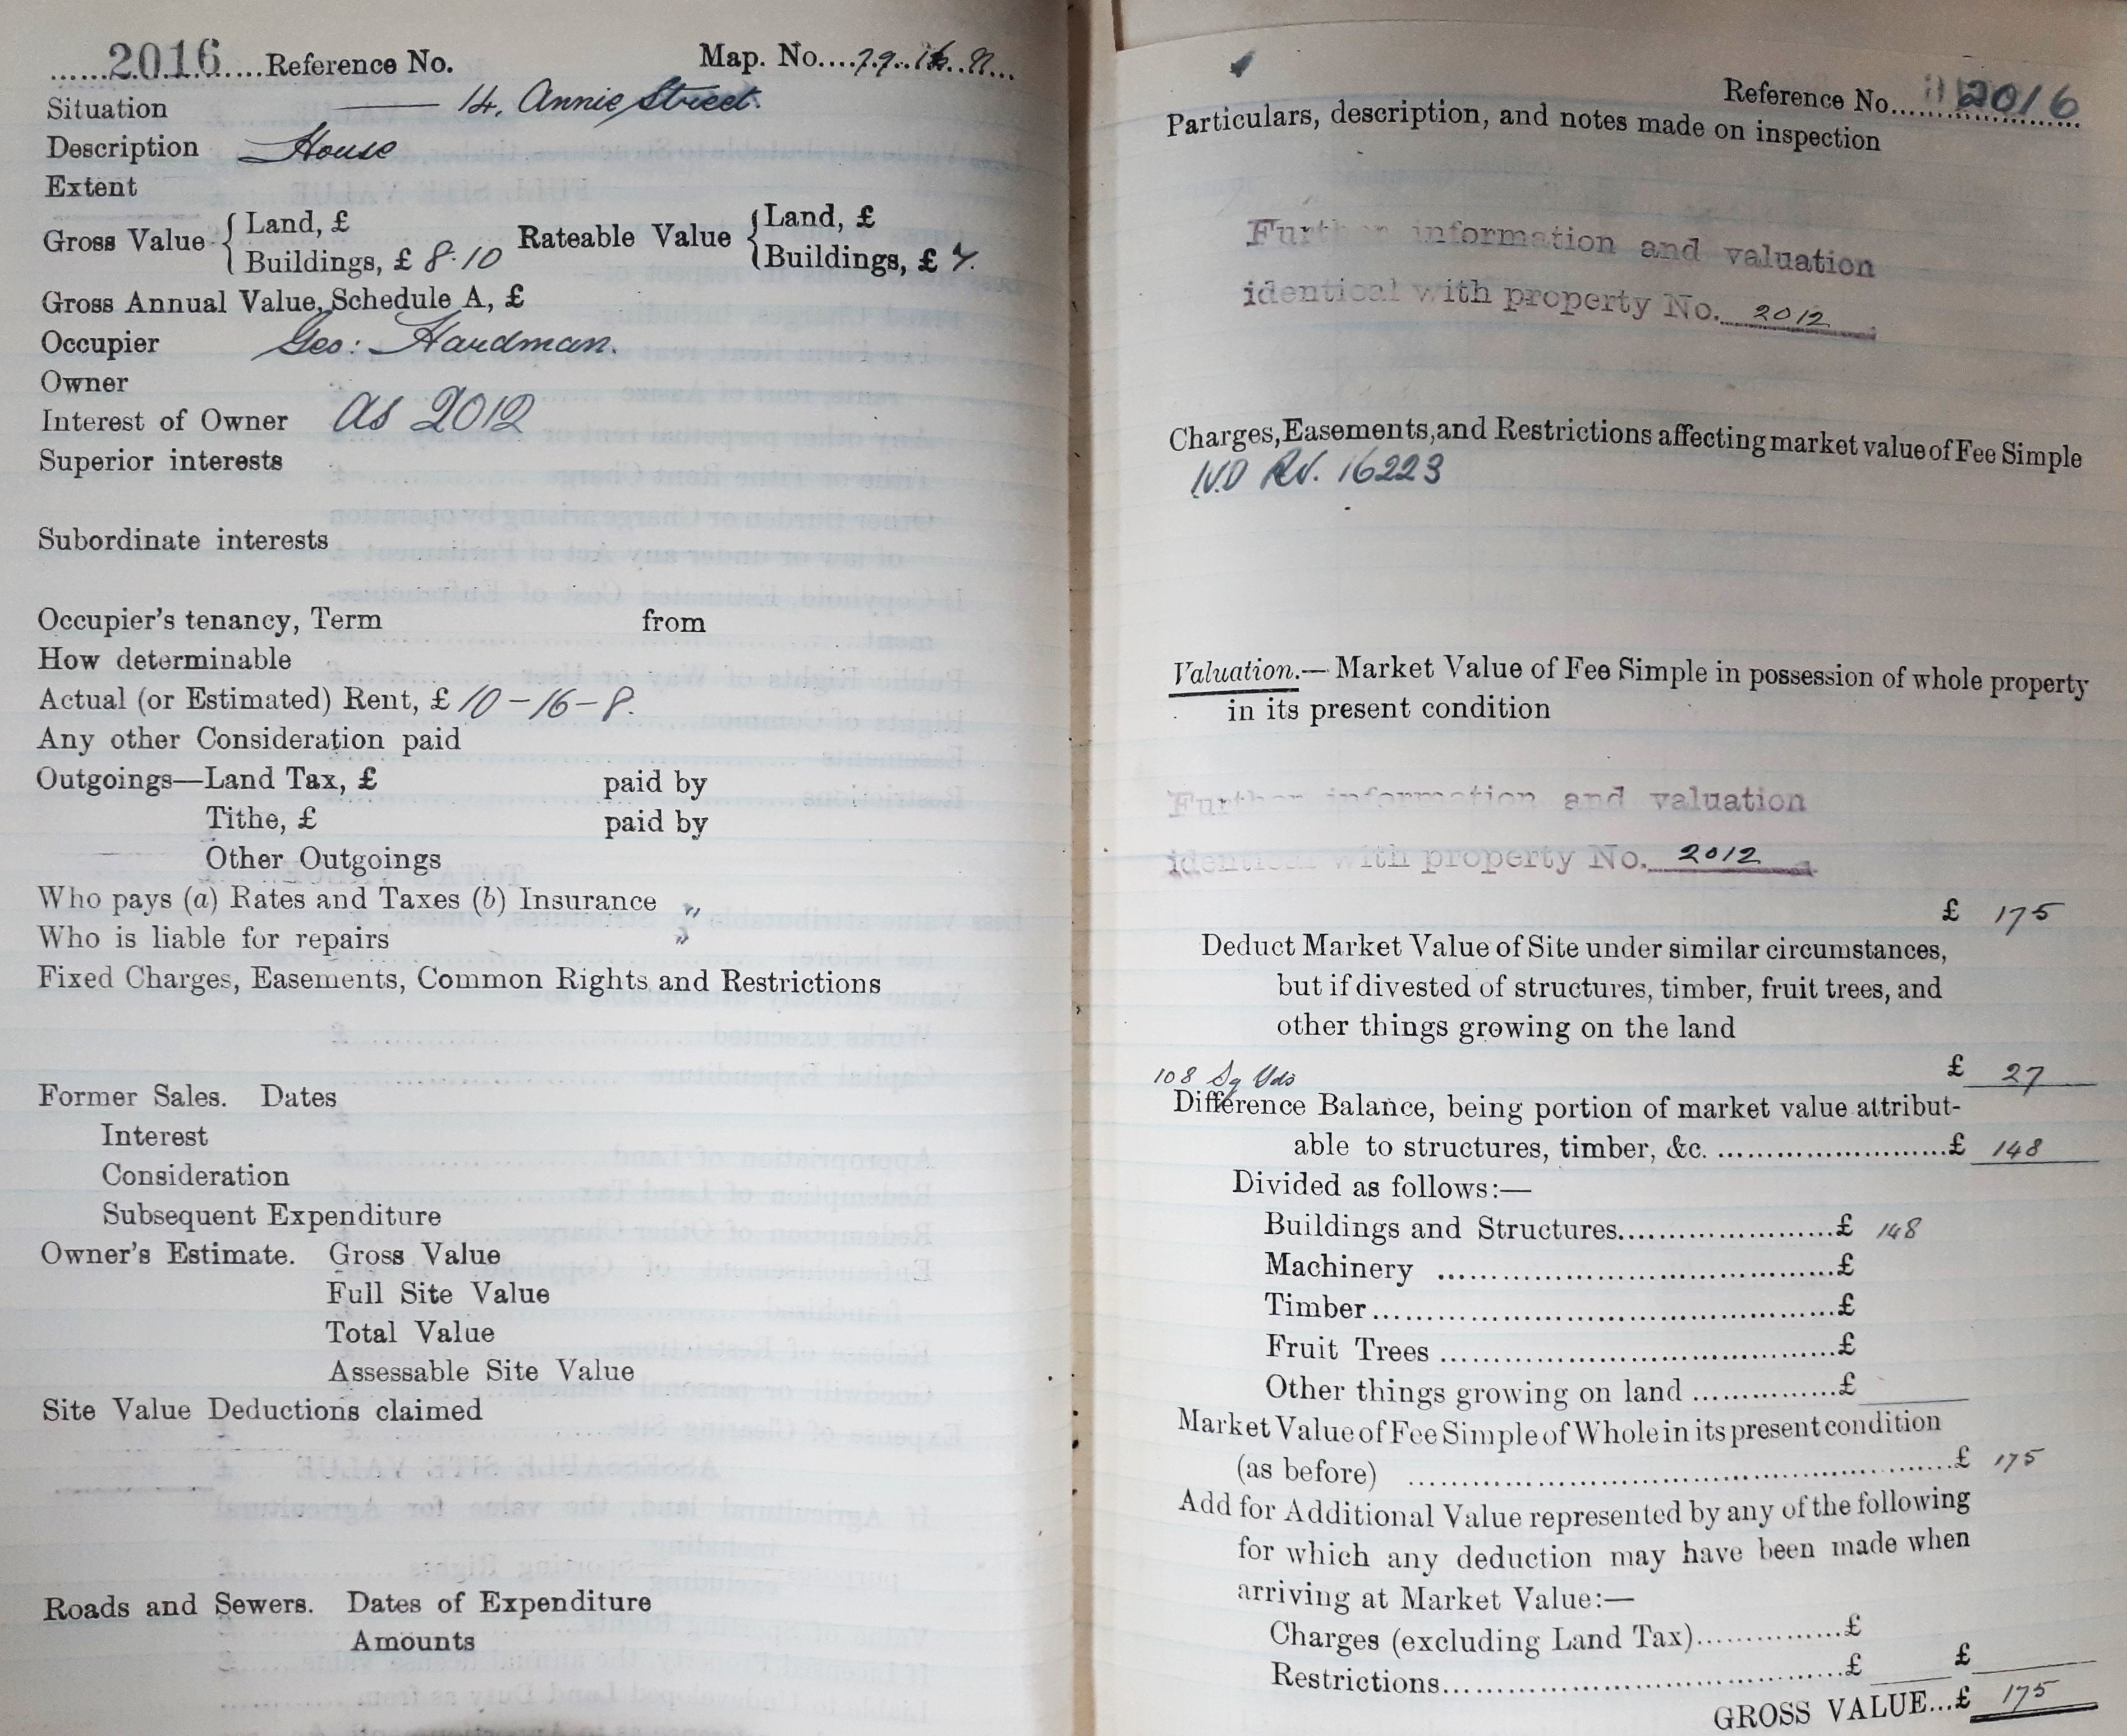 ......2016.....Reference No. Map. No....79..16..
Situation —— 14, Annie Street.
Description House
Extent
Gross Value { Land, £ Rateable Value { Land, £
Buildings, £ 8·10 Buildings, £ 7.
Gross Annual Value, Schedule A, £
Occupier Geo: Hardman.
Owner
Interest of Owner as 2012
Superior interests
Subordinate interests
Occupier's tenancy, Term from
How determinable
Actual (or Estimated) Rent, £ 10-16-8.
Any other Consideration paid
Outgoings—Land Tax, £ paid by
Tithe, £ paid by
Other Outgoings
Who pays (a) Rates and Taxes (b) Insurance "
Who is liable for repairs "
Fixed Charges, Easements, Common Rights and Restrictions
Former Sales. Dates
Interest
Consideration
Subsequent Expenditure
Owner's Estimate. Gross Value
Full Site Value
Total Value
Assessable Site Value
Site Value Deductions claimed
Roads and Sewers. Dates of Expenditure
Amounts
Reference No. 2016
Particulars, description, and notes made on inspection
Further information and valuation
identical with property No. 2012
Charges, Easements, and Restrictions affecting market value of Fee Simple
16223
Valuation.— Market Value of Fee Simple in possession of whole property
in its present condition
Further information and valuation
identical with property No. 2012
£ 175
Deduct Market Value of Site under similar circumstances,
but if divested of structures, timber, fruit trees, and
other things growing on the land
£ 27
108 Sq Yds
Difference Balance, being portion of market value attribut-
able to structures, timber, &c. ........................£ 148
Divided as follows:—
Buildings and Structures......................£ 148
Machinery ........................................£
Timber..............................................£
Fruit Trees .......................................£
Other things growing on land ..............£
Market Value of Fee Simple of Whole in its present condition
(as before) ......................................................£ 175
Add for Additional Value represented by any of the following
for which any deduction may have been made when
arriving at Market Value:—
Charges (excluding Land Tax)..............£
Restrictions........................................£ £
GROSS VALUE...£ 175